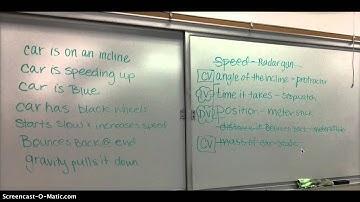 car is on an incline
car is speeding up
car is Blue
car has black wheels
Starts slow & increases speed
Bounces Back @ end
gravity pulls it down
Speed - Radar gun
CV angle of the incline - protractor
IV time it takes - stopwatch
DV Position - meterstick
distance it Bounces back - meterstick
CV mass of car - scale
Screencast-O-Matic.com